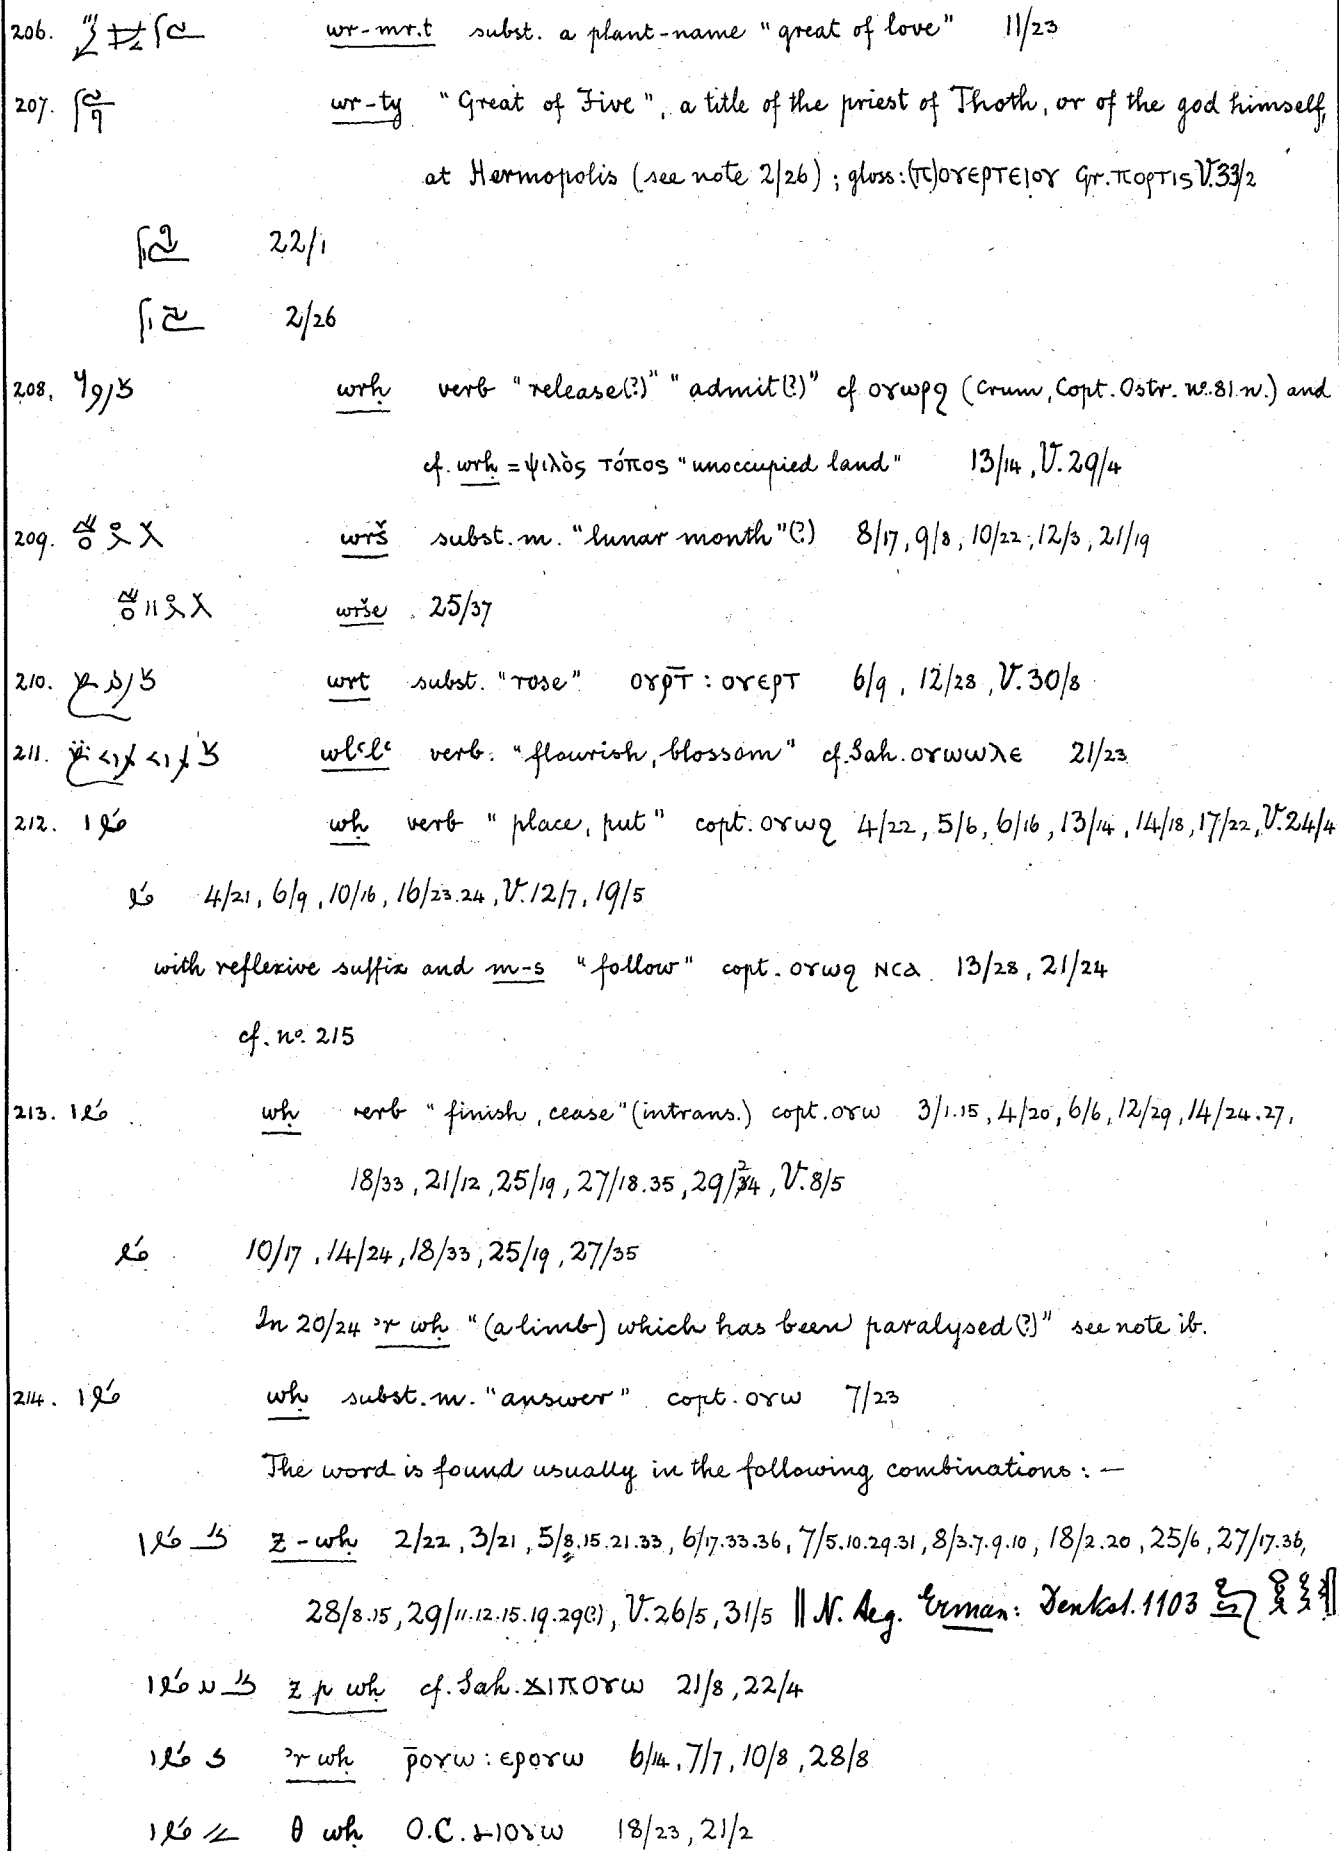 206. wr-mr.t subst. a plant-name "great of love" 11/23
207. wr-ty "Great of Five", a title of the priest of Thoth, or of the god himself,
at Hermopolis (see note 2/26); gloss: (ⲡ)ⲟⲩⲉⲣⲧⲉⲓⲟⲩ Gr. πορτις V.33/2
22/1
2/26
208. wrḥ verb "release(?)" "admit(?)" cf ⲟⲩⲱⲣϩ (Crum, Copt. Ostr. no. 81 n.) and
cf. wrḥ = ψιλὸς τόπος "unoccupied land" 13/14, V. 29/4
209. wrš subst. m. "lunar month"(?) 8/17, 9/8, 10/22, 12/3, 21/19
wrše 25/37
210. wrt subst. "rose" ⲟⲩⲣ̄ⲧ : ⲟⲩⲉⲣⲧ 6/9, 12/28, V. 30/8
211. wlꜥlꜥ verb. "flourish, blossom" cf. Sah. ⲟⲩⲱⲱⲗⲉ 21/23
212. wḥ verb "place, put" copt. ⲟⲩⲱϩ 4/22, 5/6, 6/16, 13/14, 14/18, 17/22, V. 24/4
4/21, 6/9, 10/16, 16/23.24, V. 12/7, 19/5
with reflexive suffix and m-s "follow" copt. ⲟⲩⲱϩ ⲛⲥⲁ 13/28, 21/24
cf. no. 215
213. wḥ verb "finish, cease" (intrans.) copt. ⲟⲩⲱ 3/1.15, 4/20, 6/6, 12/29, 14/24.27,
18/33, 21/12, 25/19, 27/18.35, 29/24, V. 8/5
10/17, 14/24, 18/33, 25/19, 27/35
In 20/24 ꜣr wḥ "(a limb) which has been paralysed(?)" see note ib.
214. wḥ subst. m. "answer" copt. ⲟⲩⲱ 7/23
The word is found usually in the following combinations: —
z-wḥ 2/22, 3/21, 5/8.15.21.33, 6/17.33.36, 7/5.10.29.31, 8/3.7.9.10, 18/2.20, 25/6, 27/17.36,
28/8.15, 29/11.12.15.19.29(?), V. 26/5, 31/5 || N. Aeg. Erman: Denkst. 1103
z p wḥ cf. Sah. ϫⲓⲡⲟⲩⲱ 21/8, 22/4
ꜣr wḥ ⲣ̄ⲟⲩⲱ : ⲉⲣⲟⲩⲱ 6/14, 7/7, 10/8, 28/8
θ wḥ O.C. 18/23, 21/2